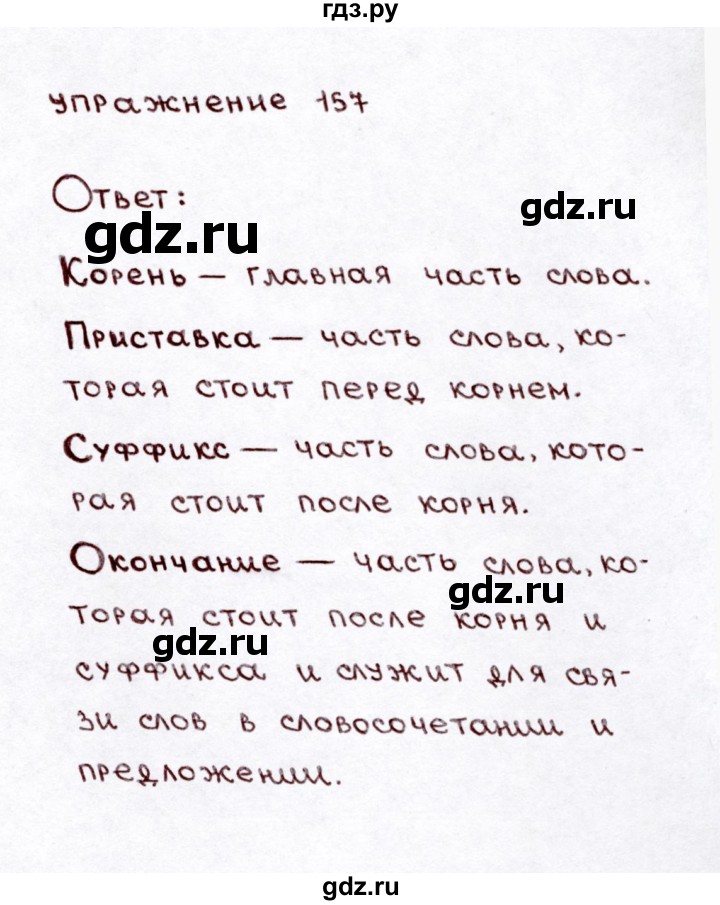 гдз.ру
упражнение 157
Ответ:
gdz.ru
gdz.ru
Корень – главная часть слова.
Приставка – часть слова, ко-
торая стоит перед корнем.
Суффикс – часть слова, кото-
рая стоит после корня.
Окончание – часть слова, ко-
gdz.ru
торая стоит после корня и
gdz.ru
суффикса и служит для свя-
зи слов в словосочетании и
предложении.
gdz.ru